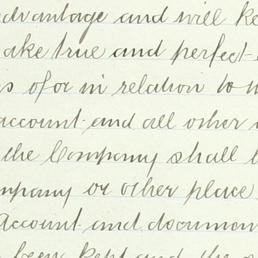 advantage and will ke
ake true and perfect
s of or in relation to
account and all other
the Company shall
mpany or other place
account and documen
been kept and the